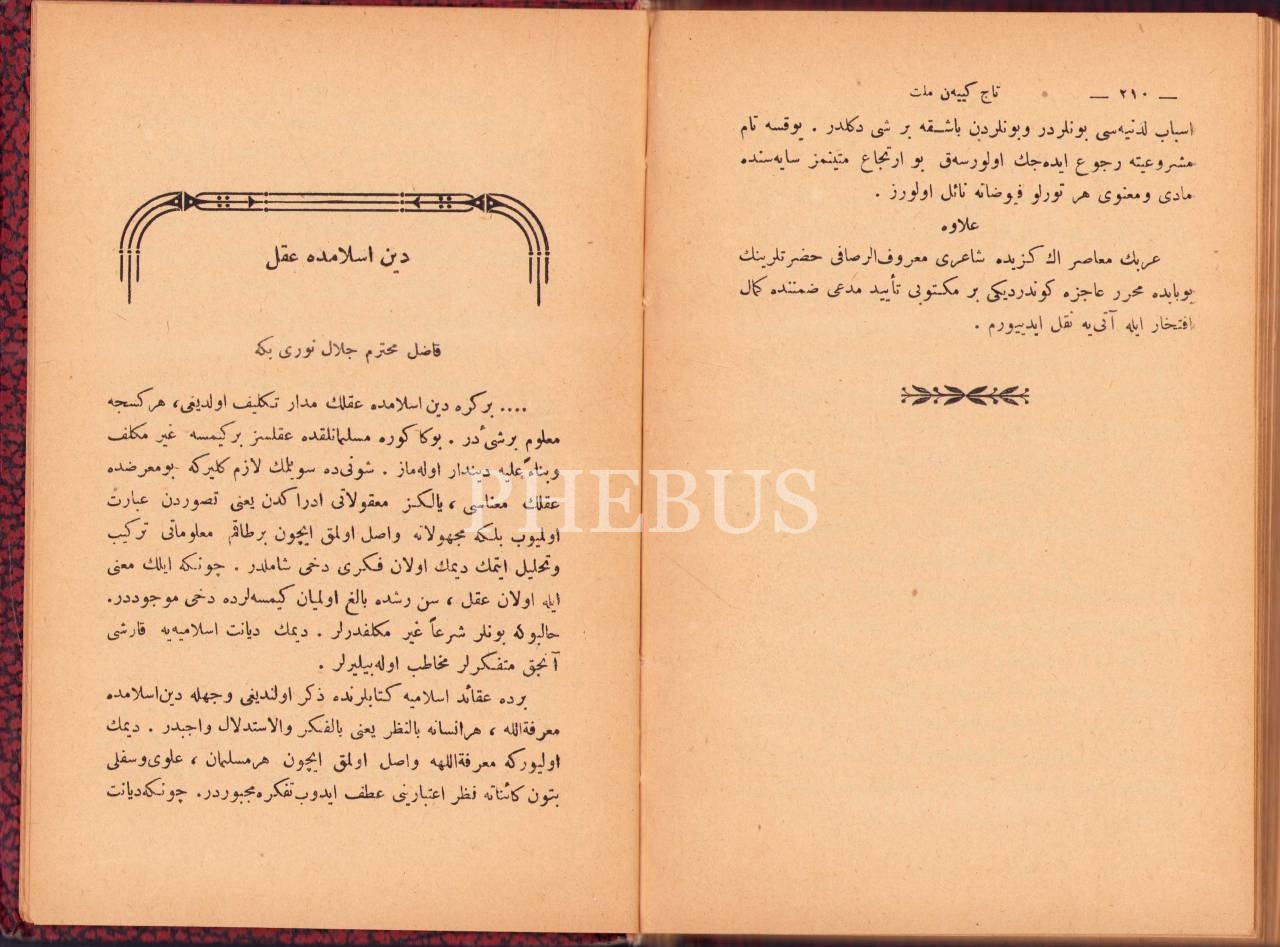 — ٢١٠ — تاج كییه‌ن ملت
اسباب لدنیه‌سی بونلردر وبونلردن باشقه بر شی دکلدر . یوقسه تام
مشروعیته رجوع ایده‌جك اولورسه‌ق بو ارتجاع متینمز سایه‌سنده
مادی ومعنوی هر تورلو فیوضاته نائل اولورز .
علاوه
عربك معاصر اك كزیده شاعری معروف‌الرصافی حضرتلرینك
بوبابده محرر عاجزه كوندردیكی بر مكتوبی تأیید مدعی ضمننده كمال
افتخار ایله آتی‌یه نقل ایدییورم .
دین اسلامده عقل
فاضل محترم جلال نوری بكه
.... بركره دین اسلامده عقلك مدار تكلیف اولدیغی، هركسجه
معلوم برشیٔ در . بوكا كوره مسلمانلقده عقلسز بركیمسه غیر مكلف
وبناءً علیه دیندار اوله‌ماز . شونی‌ده سویلمك لازم كلیركه بومعرضده
عقلك معناسی ، یالكز معقولاتی ادراكدن یعنی تصوردن عبارت
اولمیوب بلكه مجهولاته واصل اولمق ایچون برطاقم معلوماتی تركیب
وتحلیل ایتمك دیمك اولان فكری دخی شاملدر . چونكه ایلك معنی
ایله اولان عقل ، سن رشده بالغ اولمیان كیمسه‌لرده دخی موجوددر.
حالبوكه بونلر شرعاً غیر مكلفدرلر . دیمك دیانت اسلامیه‌یه قارشی
آنجق متفكرلر مخاطب اوله‌بیلیرلر .
برده عقائد اسلامیه كتابلرنده ذكر اولندیغی وجهله دین‌اسلامده
معرفةالله ، هرانسانه بالنظر یعنی بالفكر والاستدلال واجبدر . دیمك
اولیوركه معرفةاللهه واصل اولمق ایچون هرمسلمان ، علوی‌وسفلی
بتون كائناته نظر اعتبارینی عطف ایدوب‌تفكره‌مجبوردر. چونكه‌دیانت
PHEBUS